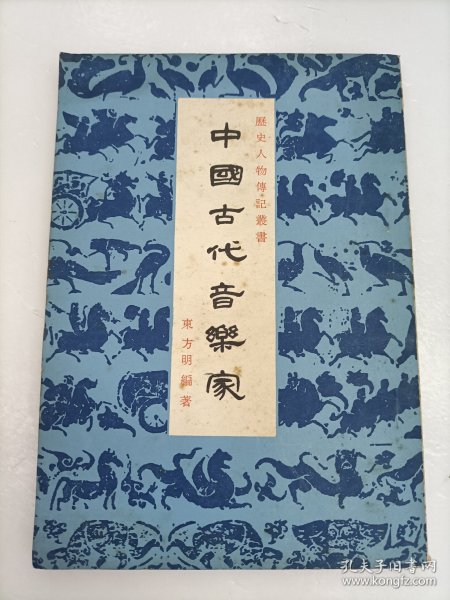 歷史人物傳記叢書
中國古代音樂家
東方明編著
孔夫子旧书网
www.kongfz.com